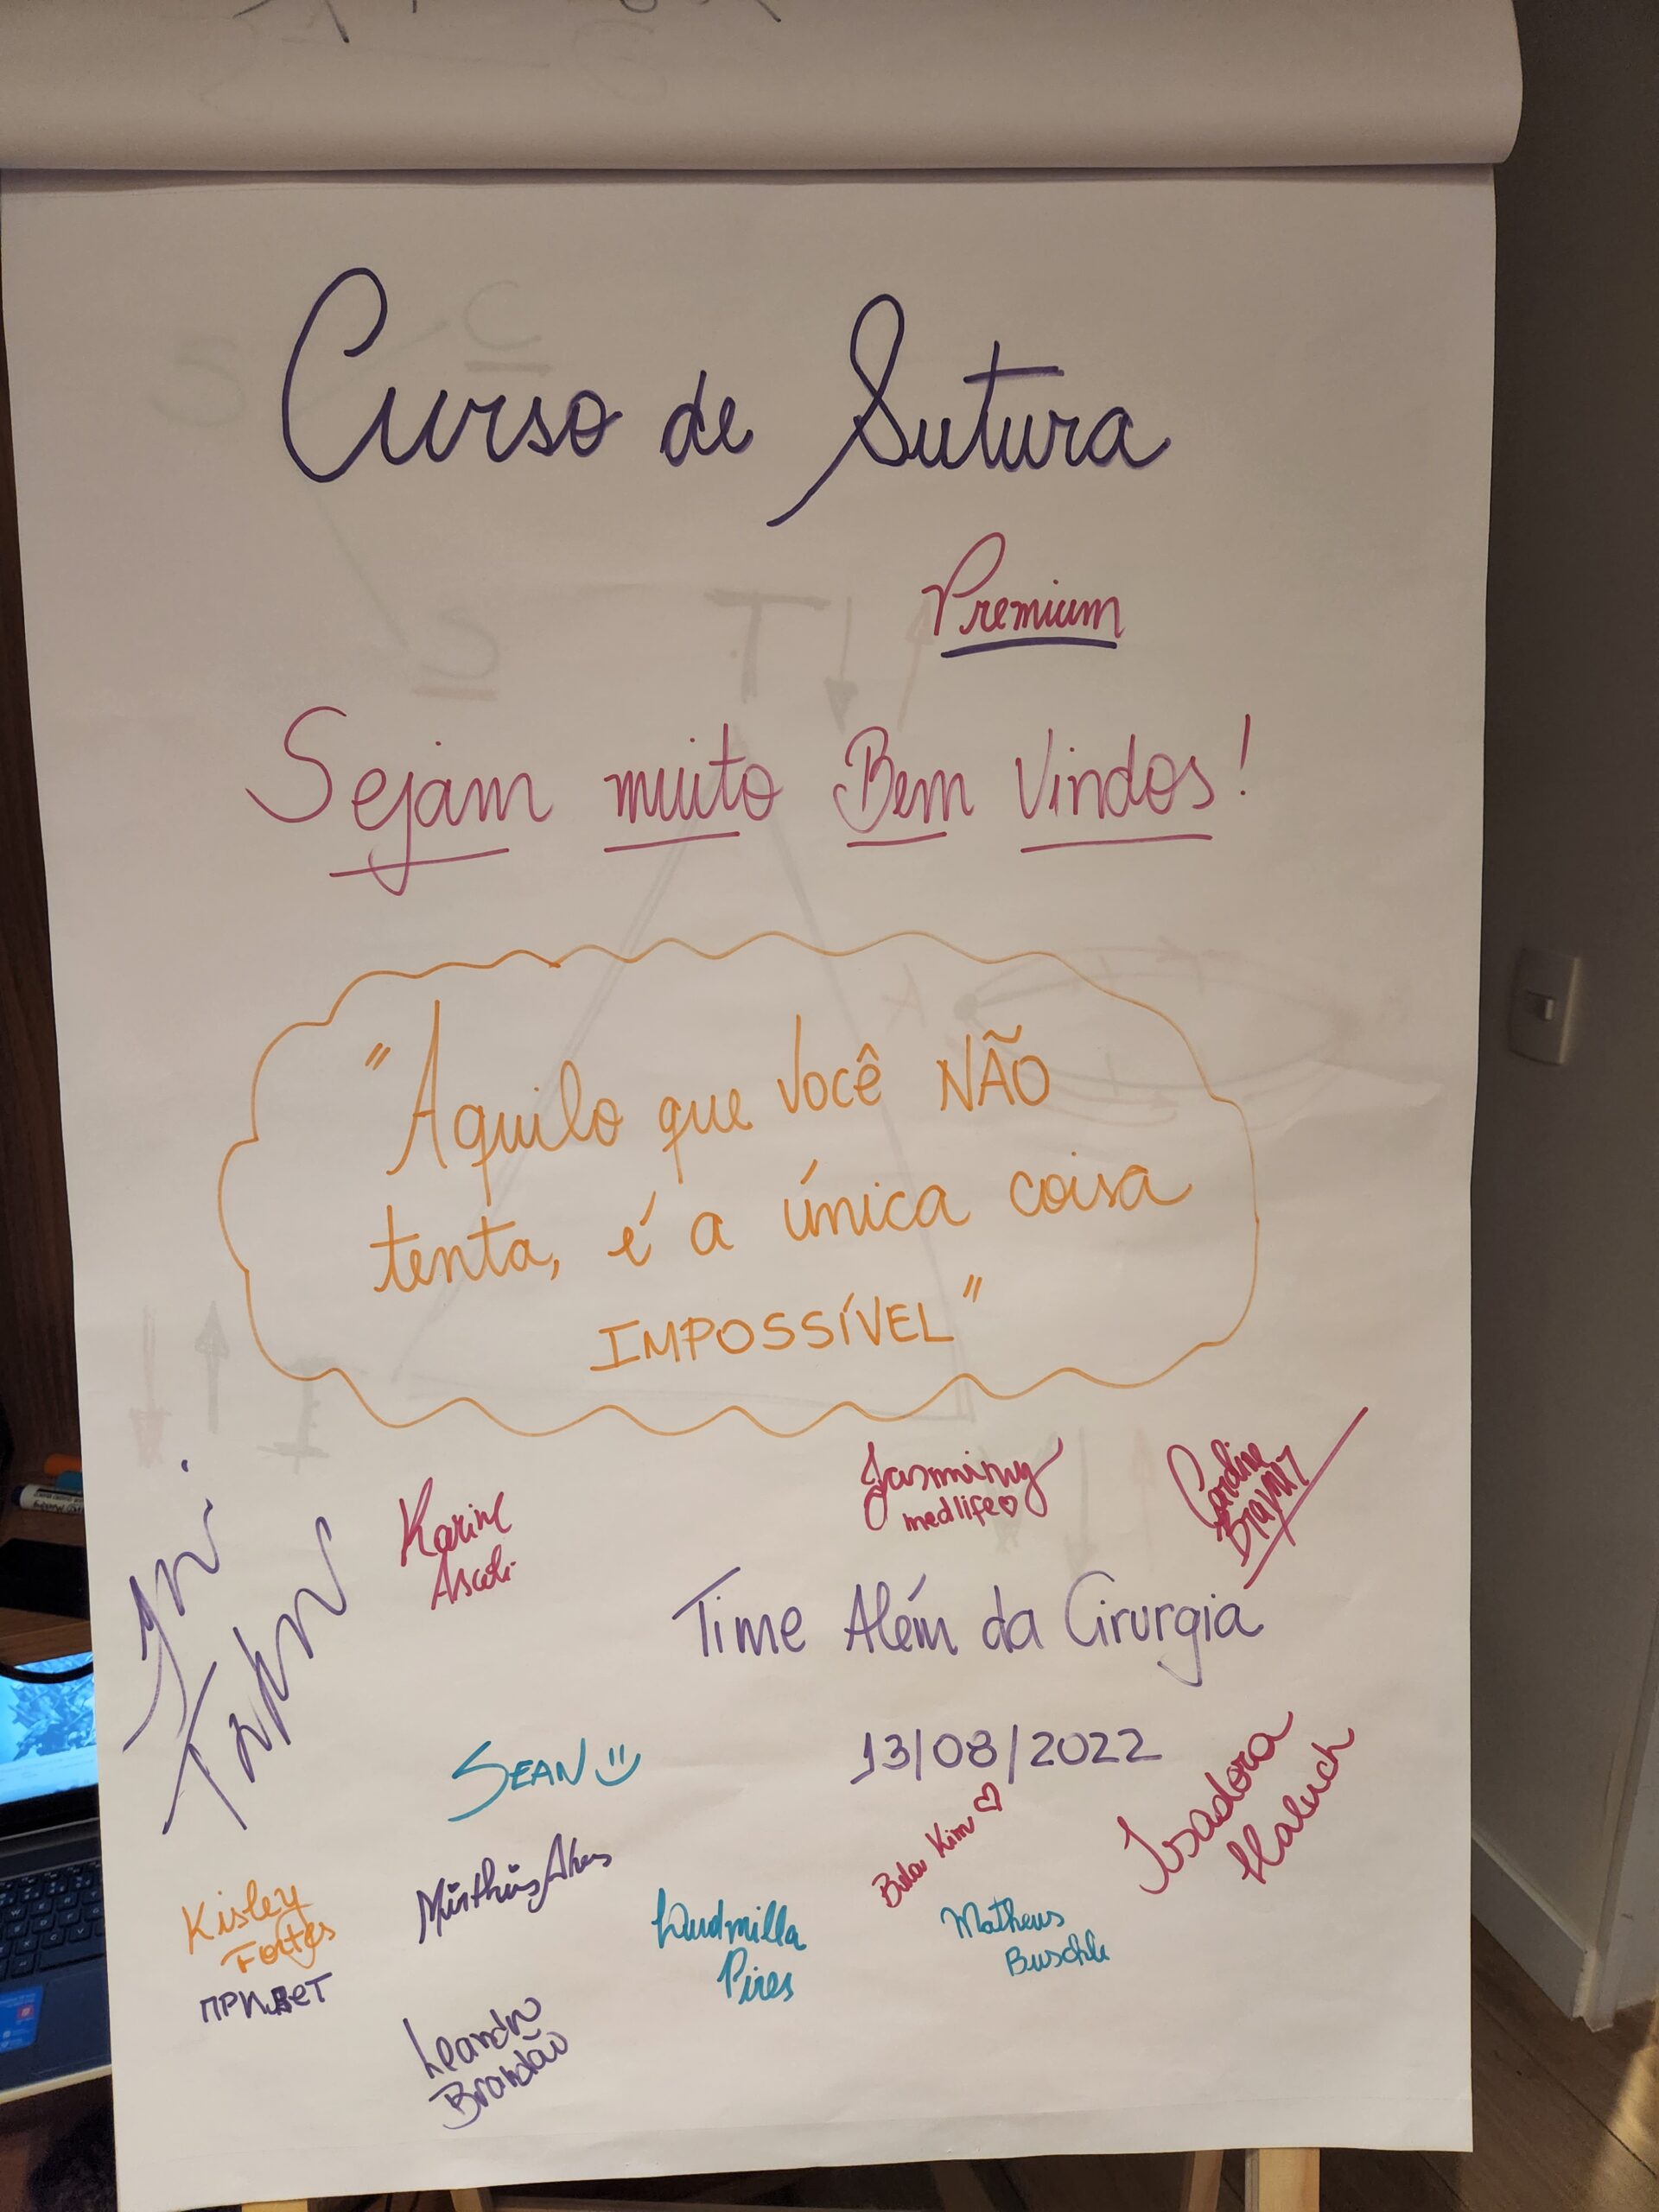 Curso de Sutura
Premium
Sejam muito Bem Vindos!
"Aquilo que você NÃO
tenta, é a única coisa
IMPOSSÍVEL"
Jasminny
medlife♡
Caroline
Karine
Ascoli
Time Além da Cirurgia
13/08/2022
SEAN
Kim ♡
Isadora
Haluch
Kisley
Fortes
ПРИВЕТ
Ludmilla
Pires
Matheus
Buschle
Leandro
Brandão